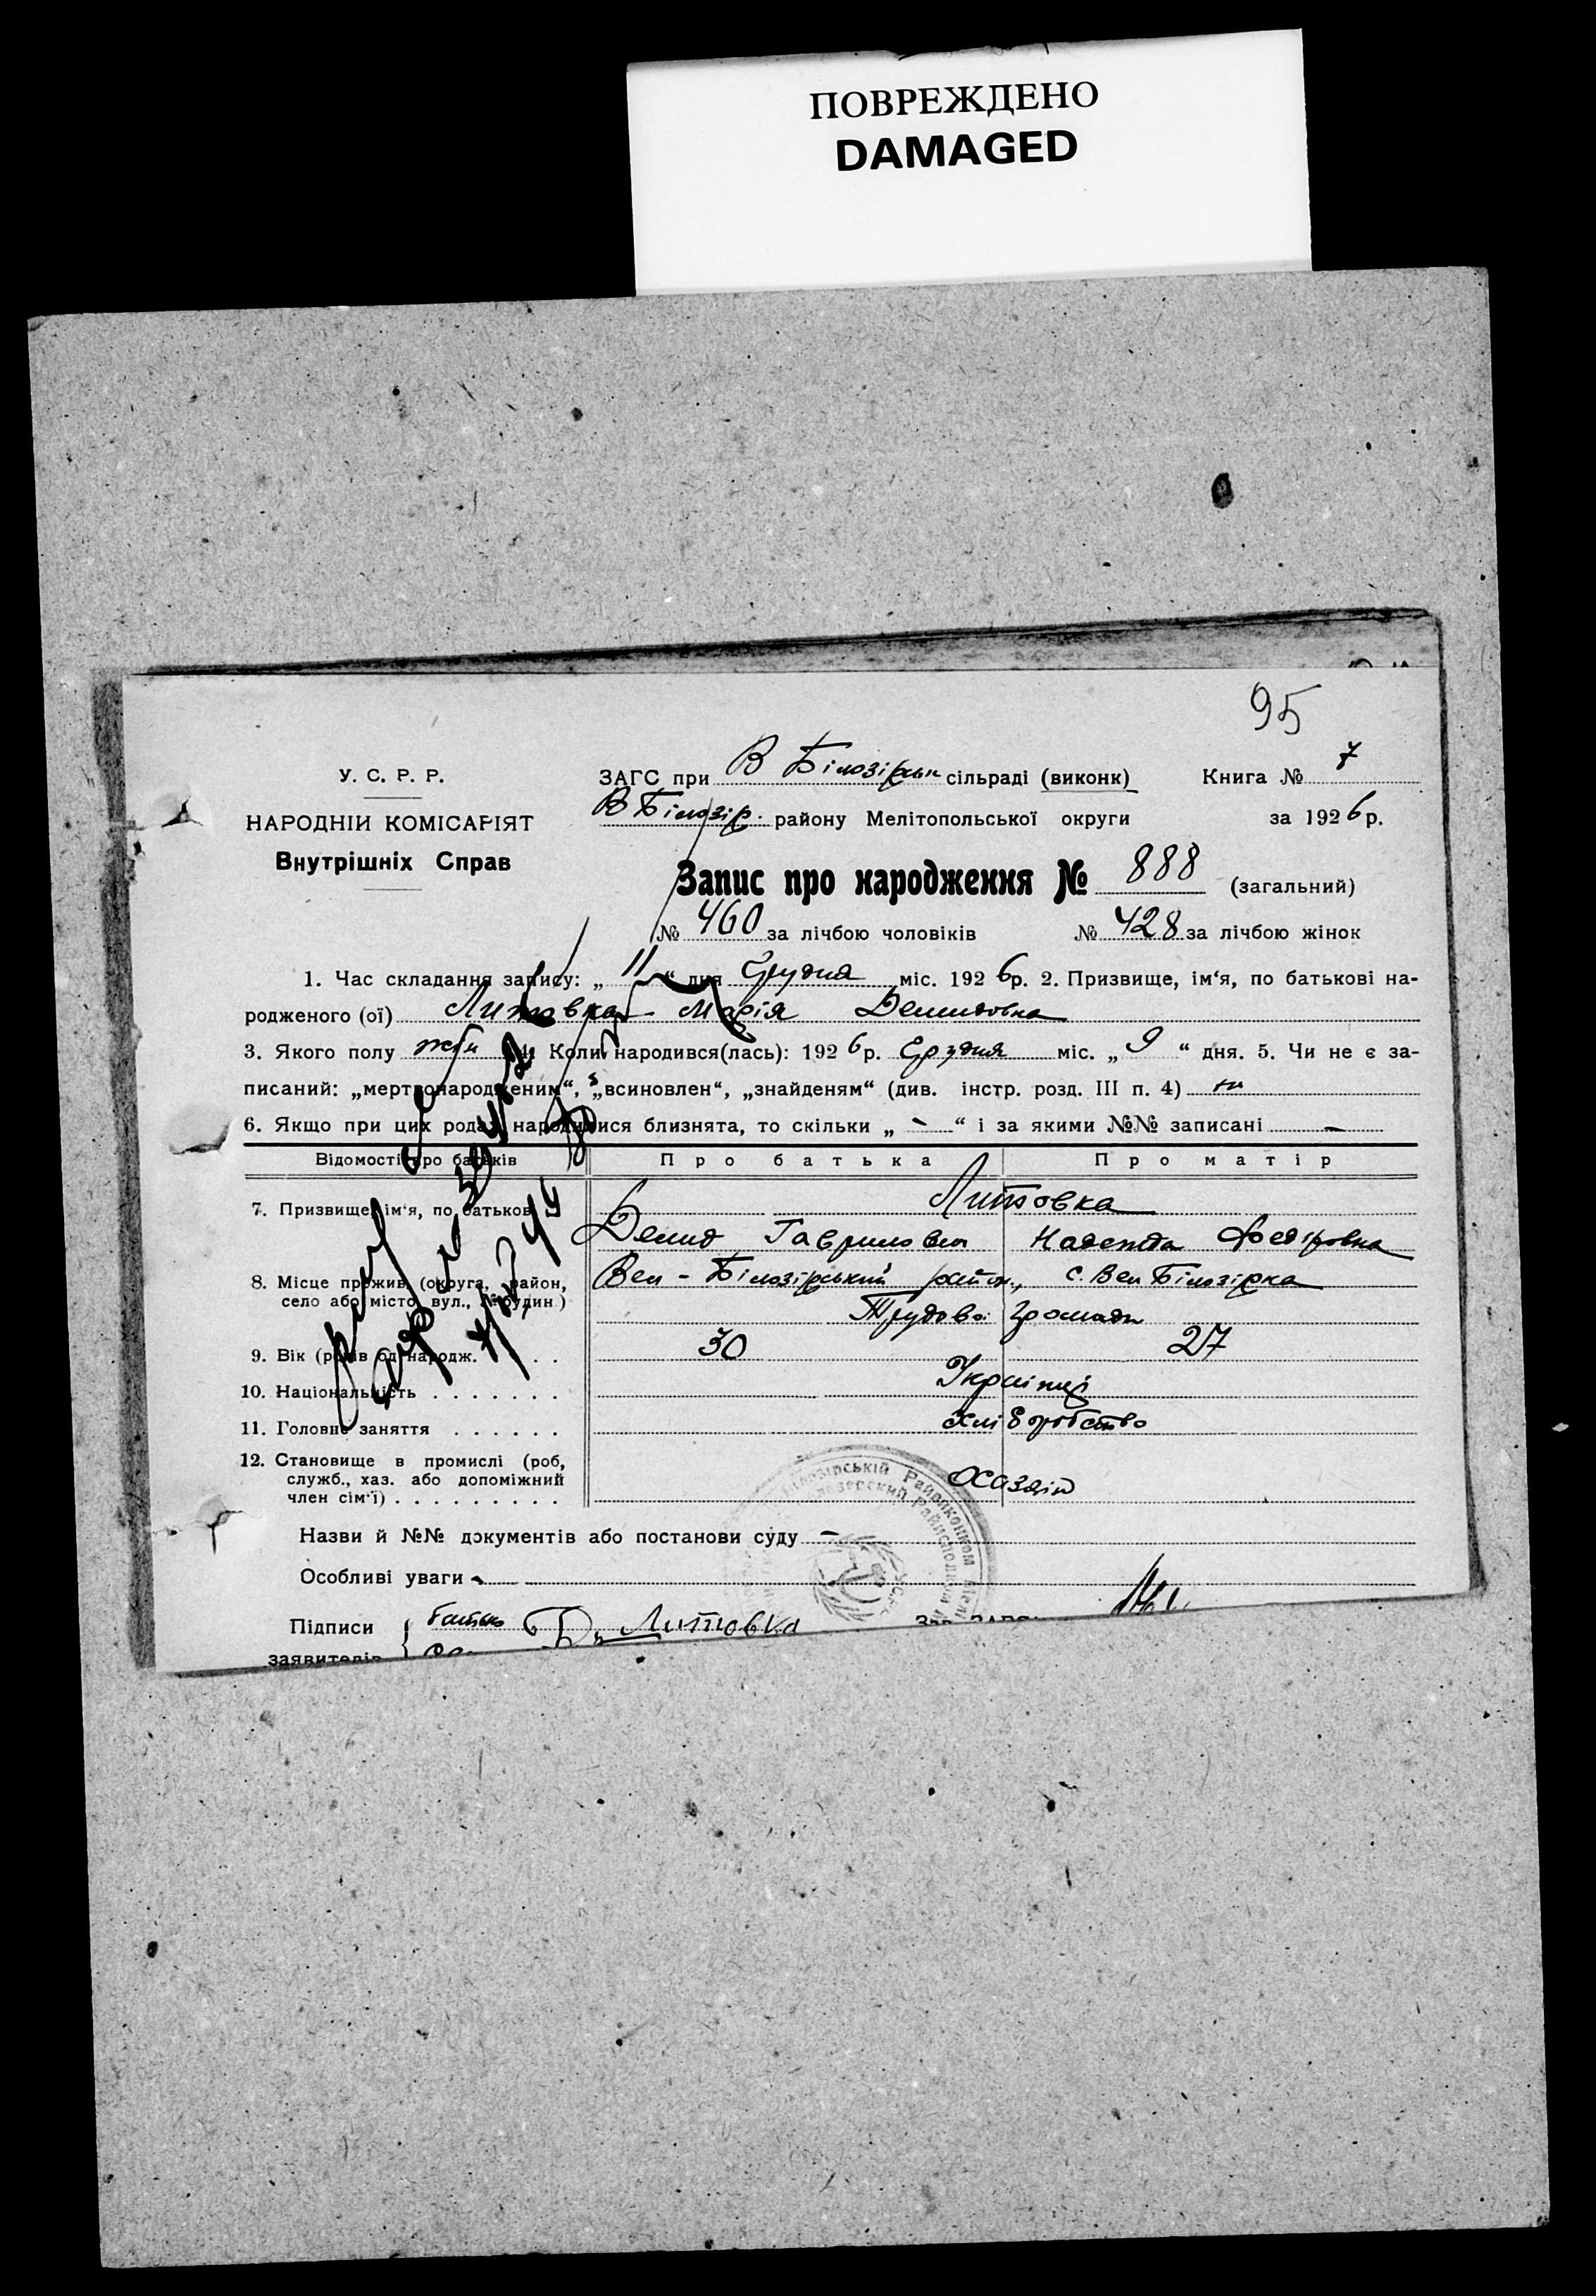 ПОВРЕЖДЕНО
DAMAGED
95
У. С. Р. Р.
ЗАГС при В Білозірськ сільраді (виконк)
Книга № 7
НАРОДНІЙ КОМІСАРІЯТ
В Білозір. району Мелітопольської округи
за 1926 р.
Внутрішніх Справ
Запис про народження № 888 (загальний)
№ 460 за лічбою чоловіків № 428 за лічбою жінок
1. Час складання запису: „ 11 “ дня Грудня міс. 1926 р. 2. Призвище, ім‘я, по батькові на-
родженого (ої) Литовка Марія Демидовна
3. Якого полу жін 4. Коли народився(лась): 1926 р. Грудня міс. „ 9 “ дня. 5. Чи не є за-
писаний: „мертвонародженим“, „всиновлен“, „знайденям“ (див. інстр. розд. III п. 4) ні
6. Якщо при цих родах народилися близнята, то скільки „ - “ і за якими №№ записані -
Відомості про батьків
Про батька
Про матір
7. Призвище, ім‘я, по батькові
Литовка
Демид Гаврилович Надежда Федіровна
8. Місце прожив. (округа, район,
село або місто, вул., № будин.)
Вел-Білозірський район., с. Вел Білозірка
Трудова громада
9. Вік (років од народж. . . .
30
27
10. Національність . . . . . . .
Українці
11. Головне заняття . . . . . .
Хліборобство
12. Становище в промислі (роб,
служб., хаз. або допоміжний
член сім‘ї) . . . . . . . . .
Хазяїн
Назви й №№ документів або постанови суду -
Особливі уваги -
Підписи
батько Литовка
заявителів